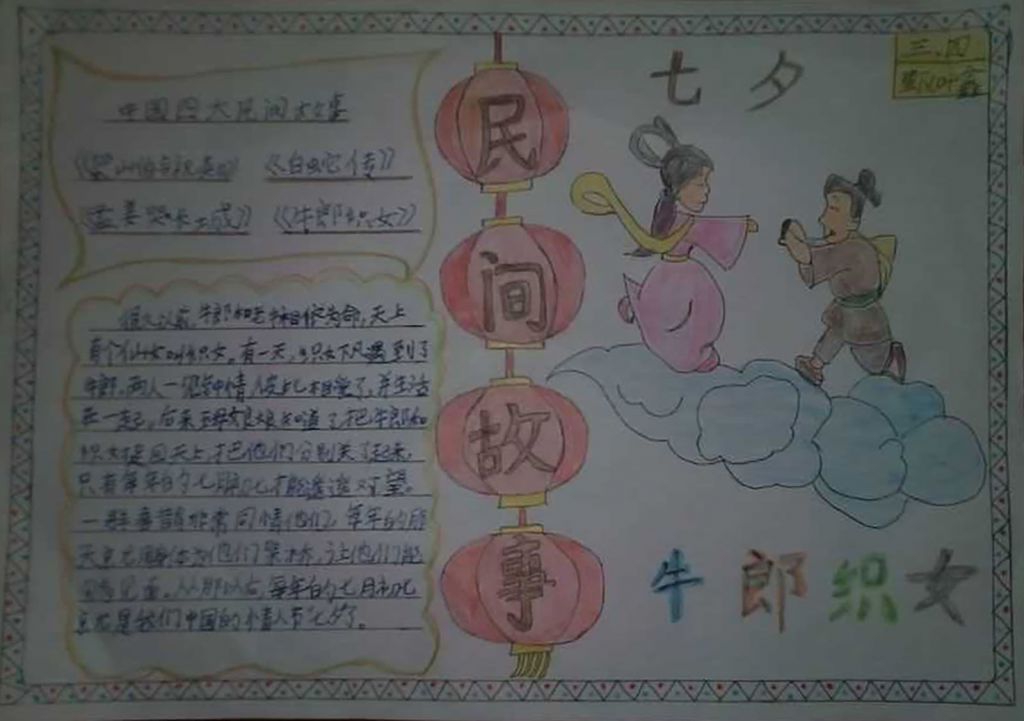 中国四大民间故事
《梁山伯与祝英台》 《白蛇传》
《孟姜哭长城》 《牛郎织女》
很久以前,牛郎和老牛相依为命,天上
有个仙女叫织女。有一天,织女下凡遇到了
牛郎,两人一见钟情,彼此相爱了,并生活
在一起,后来王母娘娘知道了,把牛郎和
织女捉回天上,把他们分别关了起来,
只有每年的七月初七才能遥遥对望。
一群喜鹊非常同情他们,每年的那
天
他们
架桥,让他们能
从那以后,每年的七月初七
就是我们中国的情人节"七夕"。
民间故事
七夕
三.四
牛郎织女